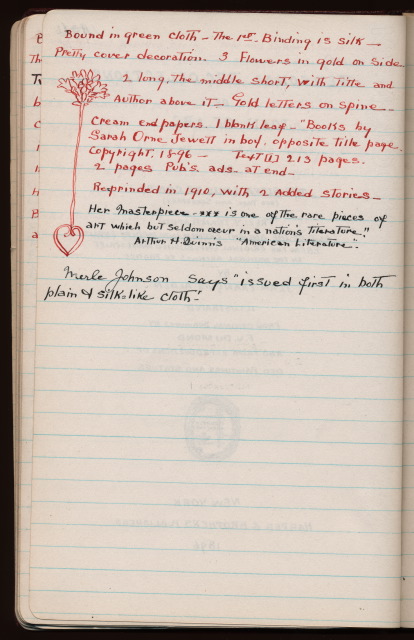 Bound in green cloth - The 1st Binding is silk -
Pretty cover decoration. 3 Flowers in gold on side
2 long, The middle short, with Title and
Author above it - Gold letters on spine -
Cream end papers. 1 blank leaf - "Books by
Sarah Orne Jewett in box, opposite title page.
Copyright. 1896 - Text [1] 213 pages.
2 pages Pub's ads. at end -
Reprinded in 1910, with 2 Added stories -
Her Masterpiece - xxx is one of the rare pieces of
art which but seldom occur in a nation's literature."
Arthur H. Quinn's "American Literature".
Merle Johnson says "issued first in both
plain & silk-like cloth"